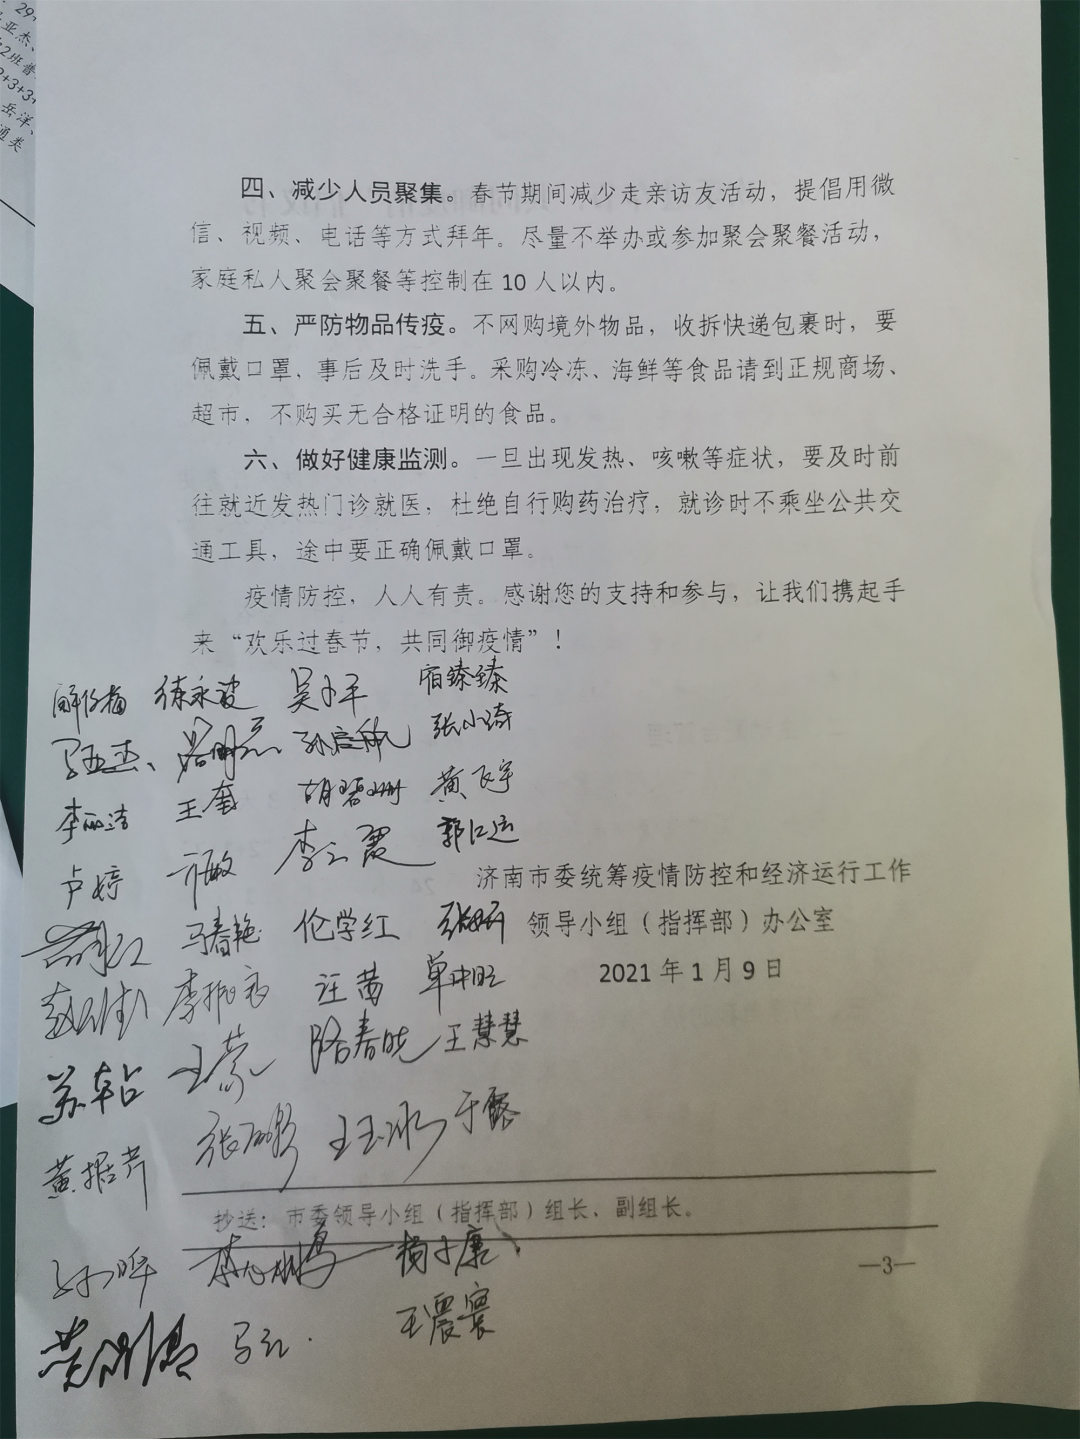 29
亚杰、
2班普
2+3+3+
岳洋、
通类
四、减少人员聚集。春节期间减少走亲访友活动，提倡用微
信、视频、电话等方式拜年。尽量不举办或参加聚会聚餐活动，
家庭私人聚会聚餐等控制在 10 人以内。
五、严防物品传疫。不网购境外物品，收拆快递包裹时，要
佩戴口罩，事后及时洗手。采购冷冻、海鲜等食品请到正规商场、
超市，不购买无合格证明的食品。
六、做好健康监测。一旦出现发热、咳嗽等症状，要及时前
往就近发热门诊就医，杜绝自行购药治疗，就诊时不乘坐公共交
通工具，途中要正确佩戴口罩。
疫情防控，人人有责。感谢您的支持和参与，让我们携起手
来“欢乐过春节，共同御疫情”！
徐永波 吴小平 宿臻臻
马亚杰、 张小琦
李丽洁 王奎 胡碧珊 黄飞宇
卢婷 李云霞 郭江运
济南市委统筹疫情防控和经济运行工作
马春艳 伦学红
领导小组（指挥部）办公室
汪茜 单中旺
2021 年 1 月 9 日
王蒙 路春晓 王慧慧
王玉冰 于露
抄送：市委领导小组（指挥部）组长、副组长。
孙晖 杨小康
—3—
马红 王震寰